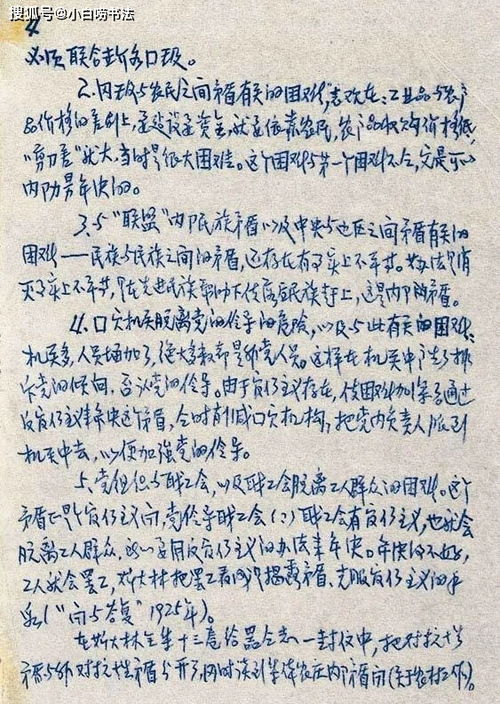 搜狐号@小白唠书法
4
必须联合断各口段。
2.因政与农民之间矛盾有关的困难,表现在:工业品与农产
品价格的差别上,是建设是资金,就是依靠农民,农产品收购价格低,
“剪刀差”就大,当时是很大困难。这个困难与第一个困难不同,它是可以
内部解决的。
3.与“联盟”内部民族矛盾以及中央与地区之间矛盾有关的
困难——民族与民族之间的矛盾,还存在有事实上不平等。办法是消
灭事实上不平等,在先进民族帮助下使落后民族赶上,这是内部矛盾。
4.国家机关脱离党的领导的危险,以及与此有关的困难:
机关多,人员增加了,绝大多数都是非党人员。这样在机关中产生了排
斥党的倾向,否认党的领导。由于官僚主义存在,使困难加深了通过
反官僚主义来解决这矛盾,同时削减国家机构,把党内负责人派到
机关中去,以便加强党的领导。
5、党组织与职工会,以及职工会脱离工人群众的困难。这个
矛盾正是官僚主义问,党领导职工会(:)职工会有官僚主义,也就会
脱离工人群众,所以要用反官僚主义的办法来解决。解决的不好,
工人就会罢工,斯大林把罢工看成是揭露矛盾、克服官僚主义的手
段(“问与答复”1925年)。
在斯大林全集十三卷给器会志一封信中,把对抗性
矛盾与非对抗性矛盾分开了,同时谈到集体农庄内部矛盾问(关于农村工作)。